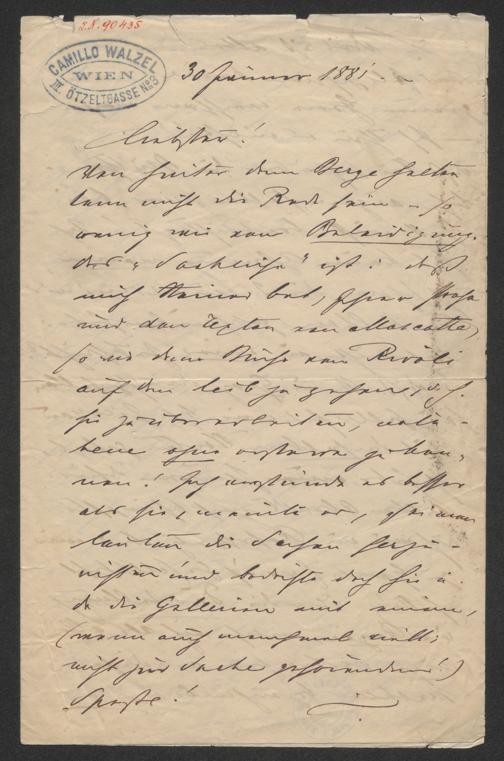 I.N. 90435
CAMILLO WALZEL
WIEN
III. ÖTZELTGASSE No 3
30 Jänner 1881.
Liebster!
Von hinter dem Berge halten
kann nicht die Rede sein – so
wenig wie von Beleidigung.
das "Sachliche" ist: daß
mich Steiner bat, Ihrer
und den Texten von Mascotte,
so wie dem Buche von Rivoli
auf den Leib zu gehen, d. h.
sie zu überarbeiten,
Ich verstünde es besser
als Sie, meinte er,
die Sachen
und doch hie u.
da die Gallerien mit einem,
(wenn auch manchmal
nicht zur Sache gehörenden!)
Spaße!